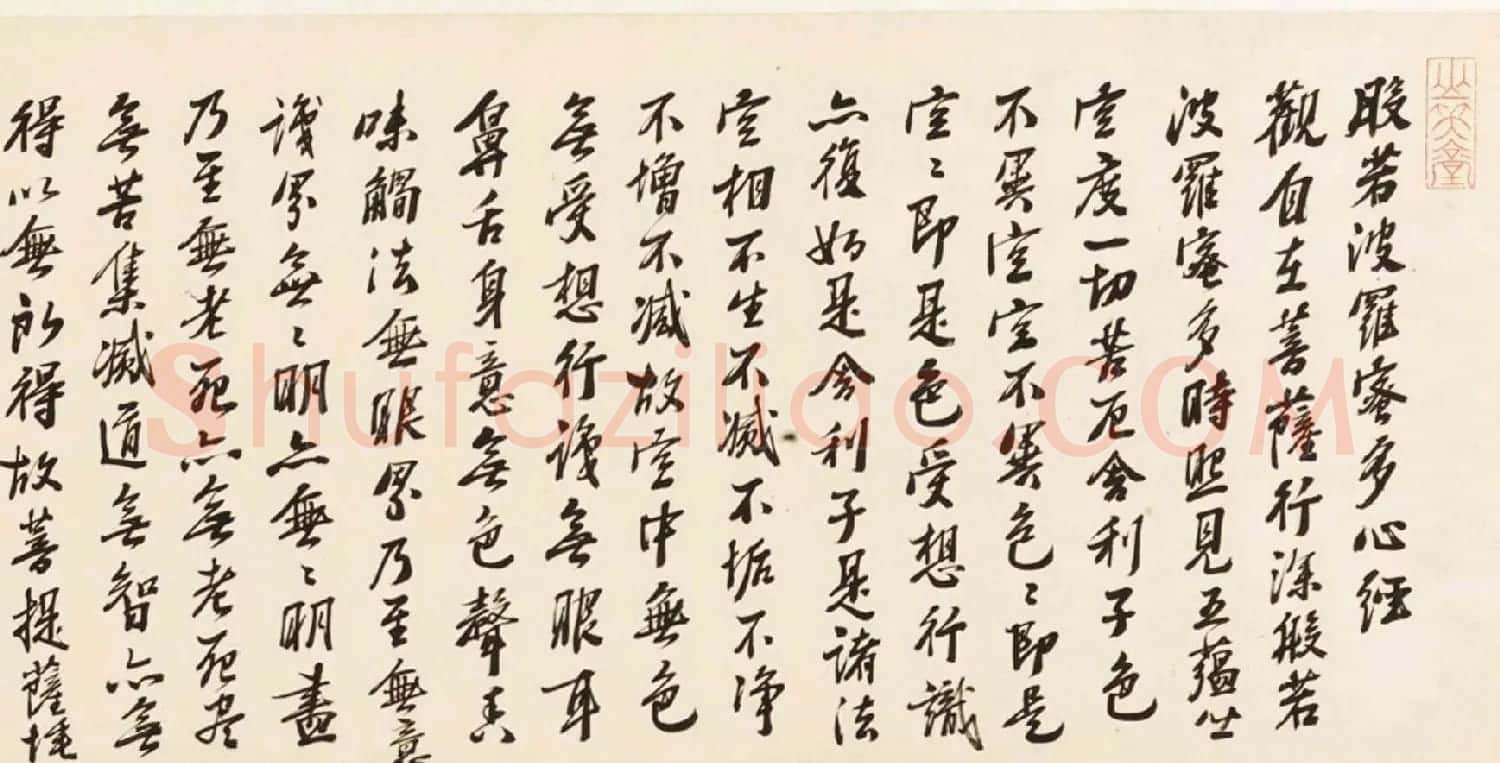 般若波羅蜜多心經
觀自在菩薩行深般若
波羅蜜多時照見五蘊皆
空度一切苦厄舍利子色
不異空空不異色〻即是
空〻即是色受想行識
亦復如是舍利子是諸法
空相不生不滅不垢不淨
不增不減故空中無色
無受想行識無眼耳
鼻舌身意無色聲香
味觸法無眼界乃至無意
識界無〻明亦無〻明盡
乃至無老死亦無老死尽
無苦集滅道無智亦無
得以無所得故菩提薩埵
Shufaziliao.COM